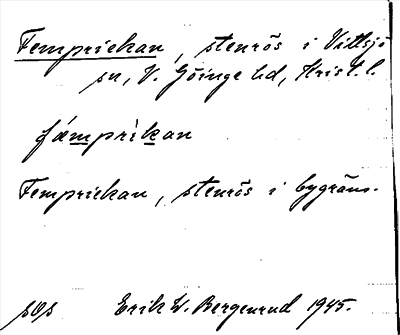 Femprickan, stenrös i Vittsjö
sn, V. Göinge hd, Krist. l.
fæmprìkan
Femprickan, stenrös i bygräns.
Erik W. Bergenrud 1945.